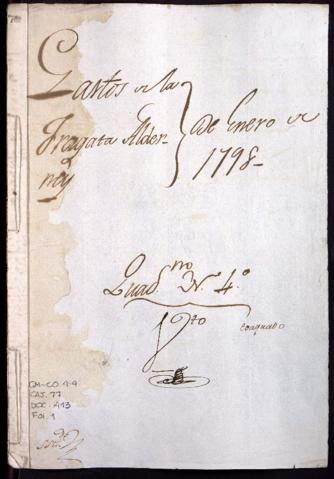 Gastos de la
Fragata Alder-
ney
De Enero de
1798-
Quad.no N.º 4.º
V.to
GM-CO 4-4
CAJ. 77
DOC. 413
Fol. 1